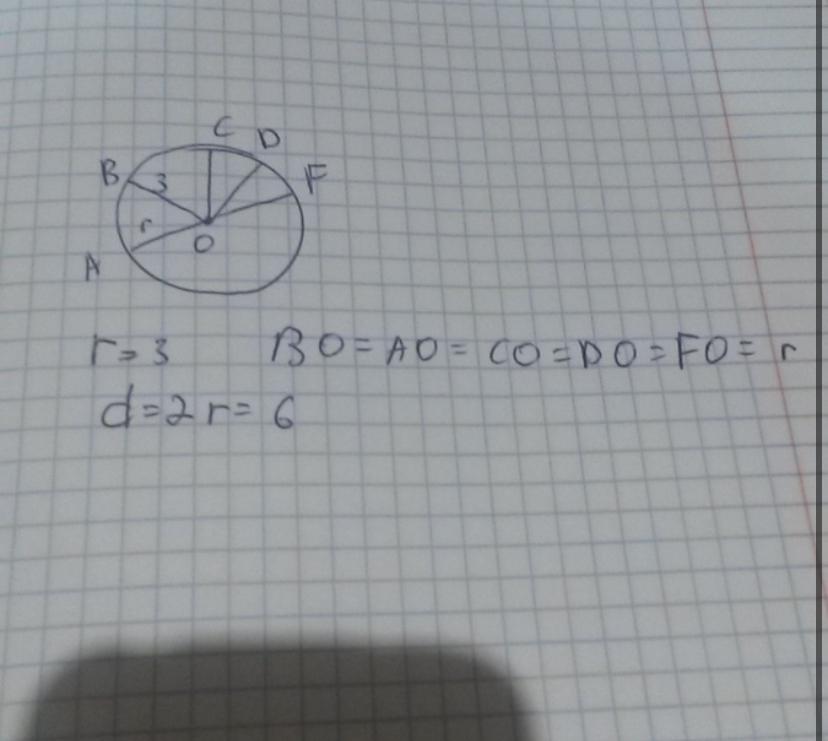 C D
B 3 F
r
O
A
r = 3 BO = AO = CO = DO = FO = r
d = 2r = 6